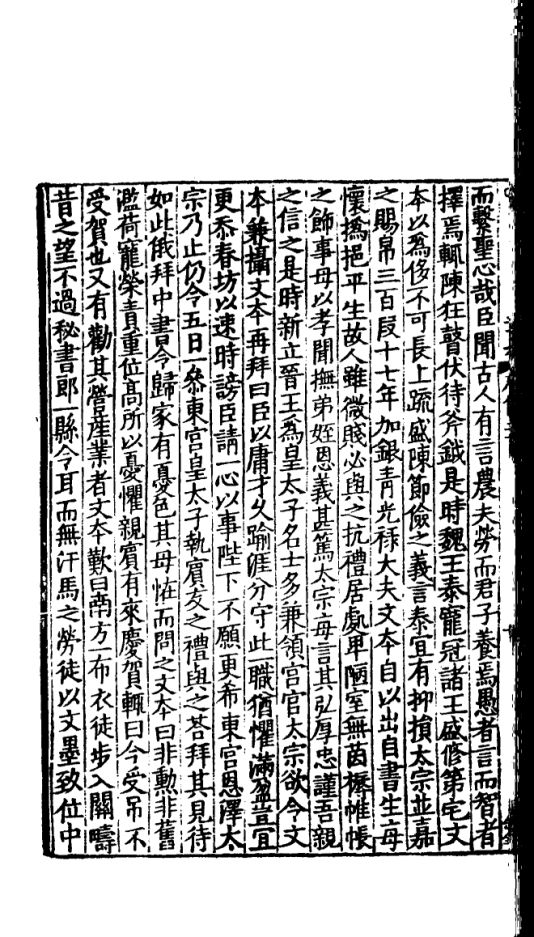 而繫聖心哉臣聞古人有言農夫勞而君子養焉愚者言而智者
擇焉輒陳狂瞽伏待斧鉞是時魏王泰寵冠諸王盛修第宅文
本以爲侈不可長上疏盛陳節儉之義言泰宜有抑損太宗並嘉
之賜帛三百段十七年加銀青光祿大夫文本自以出自書生每
懷撝挹平生故人雖微賤必與之抗禮居處卑陋室無茵褥帷帳
之飾事母以孝聞撫弟姪恩義甚篤太宗每言其弘厚忠謹吾親
之信之是時新立晉王爲皇太子名士多兼領宮官太宗欲令文
本兼攝文本再拜曰臣以庸才久踰涯分守此一職猶懼滿盈豈宜
更忝春坊以速時謗臣請一心以事陛下不願更希東宮恩澤太
宗乃止仍令五日一參東宮皇太子執賓友之禮與之荅拜其見待
如此俄拜中書令歸家有憂色其母怪而問之文本曰非勳非舊
濫荷寵榮責重位高所以憂懼親賓有來慶賀輒曰今受弔不
受賀也又有勸其營産業者文本歎曰南方一布衣徒步入關疇
昔之望不過秘書郎一縣令耳而無汗馬之勞徒以文墨致位中